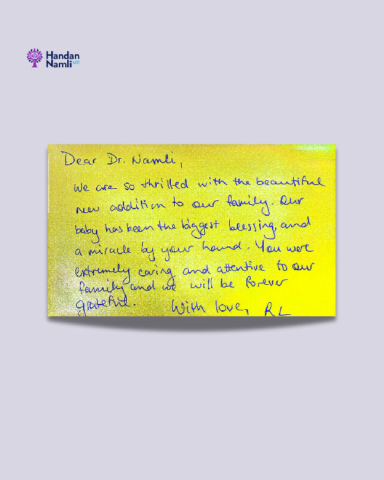 Handan
Namli MD
Dear Dr. Namli,
We are so thrilled with the beautiful
new addition to our family. Our
baby has been the biggest blessing, and
a miracle by your hand. You were
extremely caring and attentive to our
family and we will be forever
grateful. With love, RL